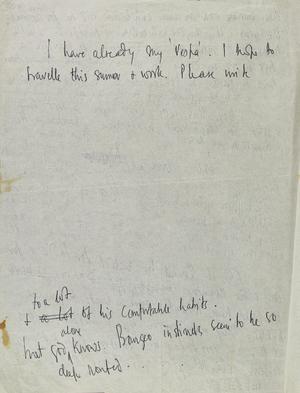 I have already my 'Vespa'. I hope to
travelle this summer + work. Please write
to a lot
+ a lot of his comfortable habits.
alone
but god knows. Bourgeo instincts seem to be so
deep rooted . . .